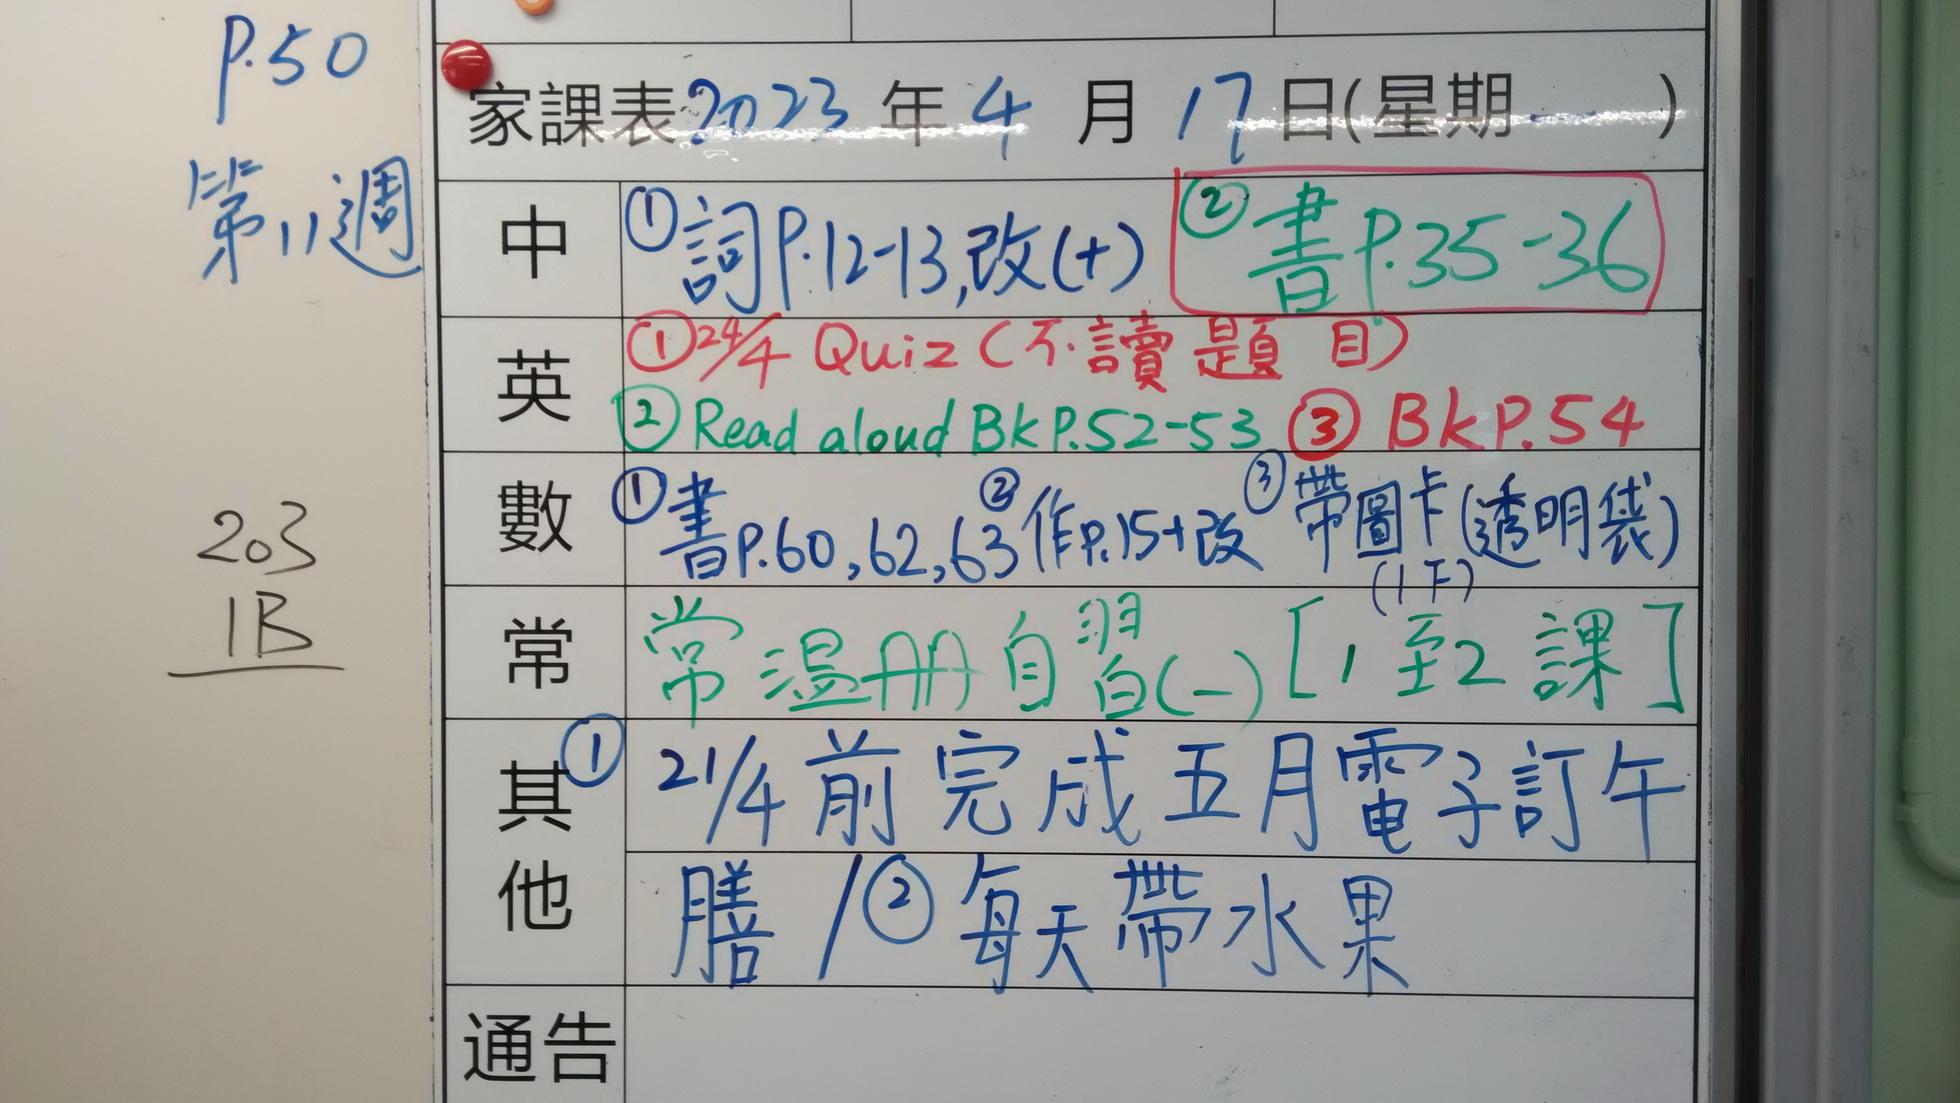 P.50
第11週
203
1B
家課表2023年4月17日(星期 一 )
中 ①詞P.12-13,改(+) ②書P.35-36
英 ①24/4 Quiz (不讀題目)
②Read aloud BKP.52-53 ③BKP.54
數 ①書P.60,62,63 ②作P.15+改 ③帶圖卡(透明袋)
(1下)
常 常溫冊自習(一)[1至2課]
其他 ①21/4前完成五月電子訂午
膳/②每天帶水果
通告